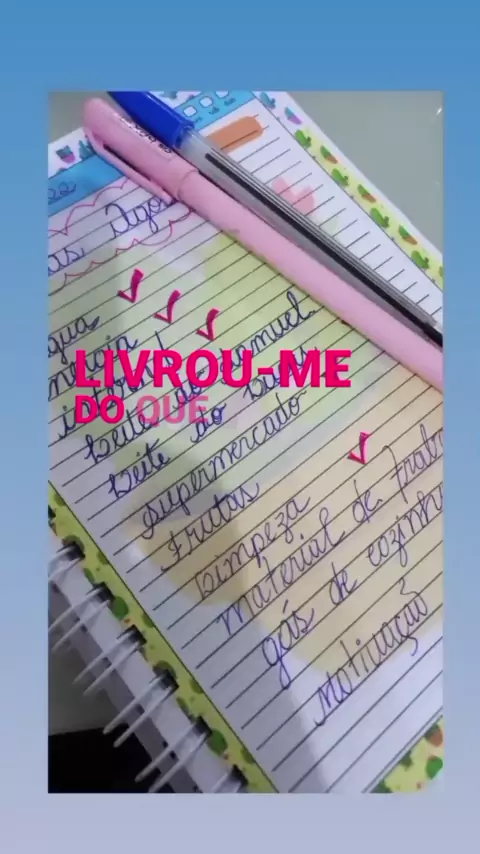 22
Água
energia
internet
LIVROU-ME
DO QUE
Leite do Samuel
Leite do
supermercado
Frutas
Limpeza
Material de
gás de cozinha
Motivação